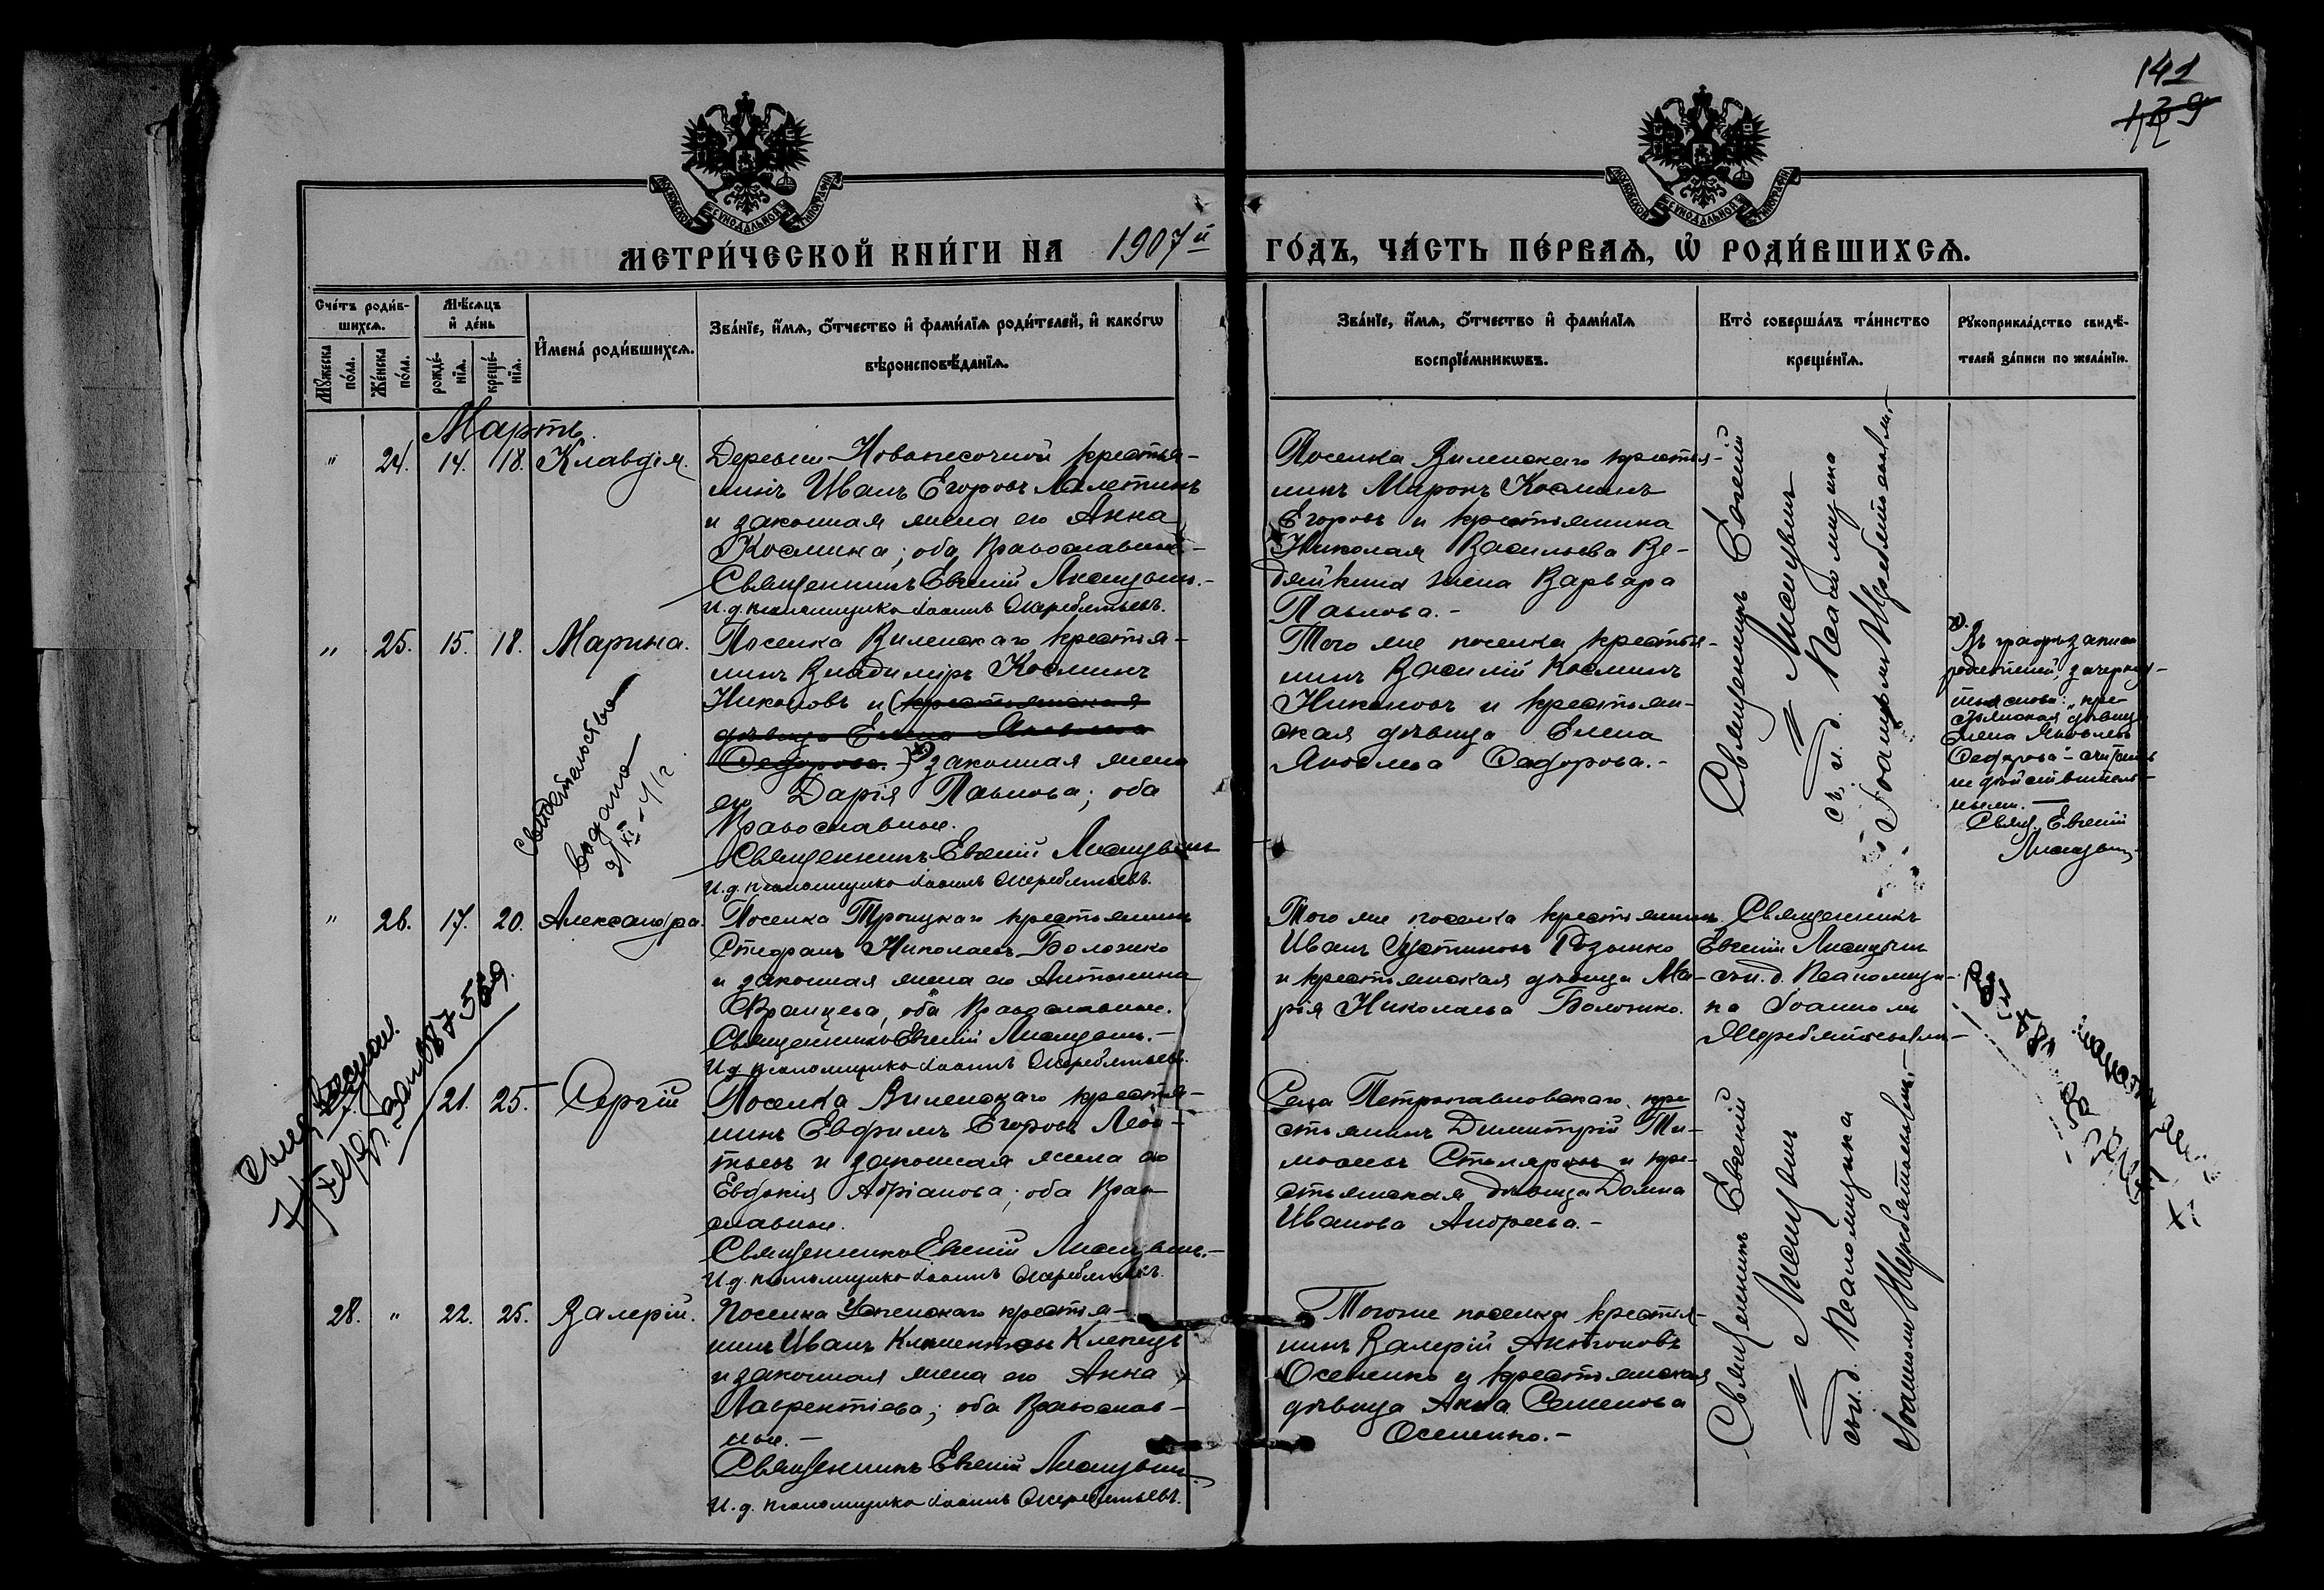 141
139
МОСКОВСКОЙ СУНОДАЛЬНОЙ ТИПОГРАФІИ
МОСКОВСКОЙ СУНОДАЛЬНОЙ ТИПОГРАФІИ
МЕТРИ́ЧЕСКОЙ КНИ́ГИ НА 1907й ГО́ДЪ, ЧА́СТЬ ПЕ́РВАѦ, Ѽ РОДИ́ВШИХСѦ.
Сче́тъ роди́в-
шихсѧ.
Мꙋ́жеска по́ла.
Же́нска по́ла.
Мѣ́сѧцъ
и҆ де́нь
рожде́-
нїѧ.
креще́-
нїѧ.
И҆мена́ роди́вшихсѧ.
Зва́нїе, и҆́мѧ, ѻ҆́тчество и҆ фами́лїѧ роди́телей, и҆ како́гѡ
вѣроисповѣ́данїѧ.
Зва́нїе, и҆́мѧ, ѻ҆́тчество и҆ фами́лїѧ
воспрїе́мникѡвъ.
Кто̀ соверша́лъ та́инство
креще́нїѧ.
Рꙋкоприкла́дство свидѣ́-
телей за́писи по жела́нїю.
Мартъ.
" 24. 14. 18. Клавдія.
Деревни Новопесочной крестья-
нинъ Иванъ Егоровъ Малетинъ
и законная жена его Анна
Космина; оба Православные.-
Священникъ Евгеній Лисицынъ.-
И.д. псаломщика Іоаннъ Жеребятьевъ.
Поселка Виленскаго крестья-
нинъ Миронъ Косминъ
Егоровъ и крестьянина
Николая Васильева Ве-
дяйкина жена Варвара
Павлова.-
Священникъ Евгеній
Лисицынъ
съ и.д. Псаломщика
Іоанномъ Жеребятьевымъ.-
" 25. 15. 18. Марина.
Поселка Виленскаго крестья-
нинъ Владиміръ Косминъ
Никоновъ и (крестьянская
дѣвица Елена Яковлева
Ѳедорова.) законная жена
его Дарія Павлова; оба
Православные.
Священникъ Евгеній Лисицынъ
И.д. псаломщика Іоаннъ Жеребятьевъ.
Того же поселка крестья-
нинъ Василій Косминъ
Никоновъ и крестьян-
ская дѣвица Елена
Яковлева Ѳедорова.-
Въ графѣ записи
родителей, зачеркну-
тыя слова: "кре-
стьянская дѣвица
Елена Яковлева
Ѳедорова" считать
не дѣйствитель-
ными.-
Свящ. Евгеній
Лисицынъ
Свидѣтельство
выдано
" 26. 17. 20. Александра.
Поселка Троицкаго крестьянинъ
Стефанъ НиколаевъБоложко
и законная жена его Антонина
Францева, оба Православные.
Священникъ Евгеній Лисицынъ.-
И.д. псаломщика Іоаннъ Жеребятьевъ.
Того же поселка крестьянинъ
Иванъ Іустиновъ Розышко
и крестьянская дѣвица Ма-
рія Николаева Боложко.
Священникъ
Евгеній Лисицынъ
съ и.д. Псаломщи-
ка Іоанномъ
Жеребятьевымъ-
21. 25. Сергій
Поселка Виленскаго крестья-
нинъ Евфимъ Егоровъ Леон-
тьевъ и законная жена его
Евдокія Адріанова; оба Право-
славные.
Священникъ Евгеній Лисицынъ.-
И.д. псаломщика Іоаннъ Жеребятьевъ.
Села Петропавловскаго кре-
стьянинъ Димитрій Ти-
моѳеевъ Столяровъ и кре-
стьянская дѣвица Домна
Иванова Андреева.-
Священникъ Евгеній
Лисицынъ
съ и.д. Псаломщика
Іоанномъ Жеребятьевымъ.-
28. " 22. 25. Валерій.
Поселка Успенскаго крестья-
нинъ Иванъ Климентовъ Клепецъ
и законная жена его Анна
Лаврентіева; оба Православ-
ные.-
Священникъ Евгеній Лисицынъ
И.д. псаломщика Іоаннъ Жеребятьевъ.
Того же поселка крестья-
нинъ Валерій Антоновъ
Осененко и крестьянская
дѣвица Анна Семенова
Осененко.-